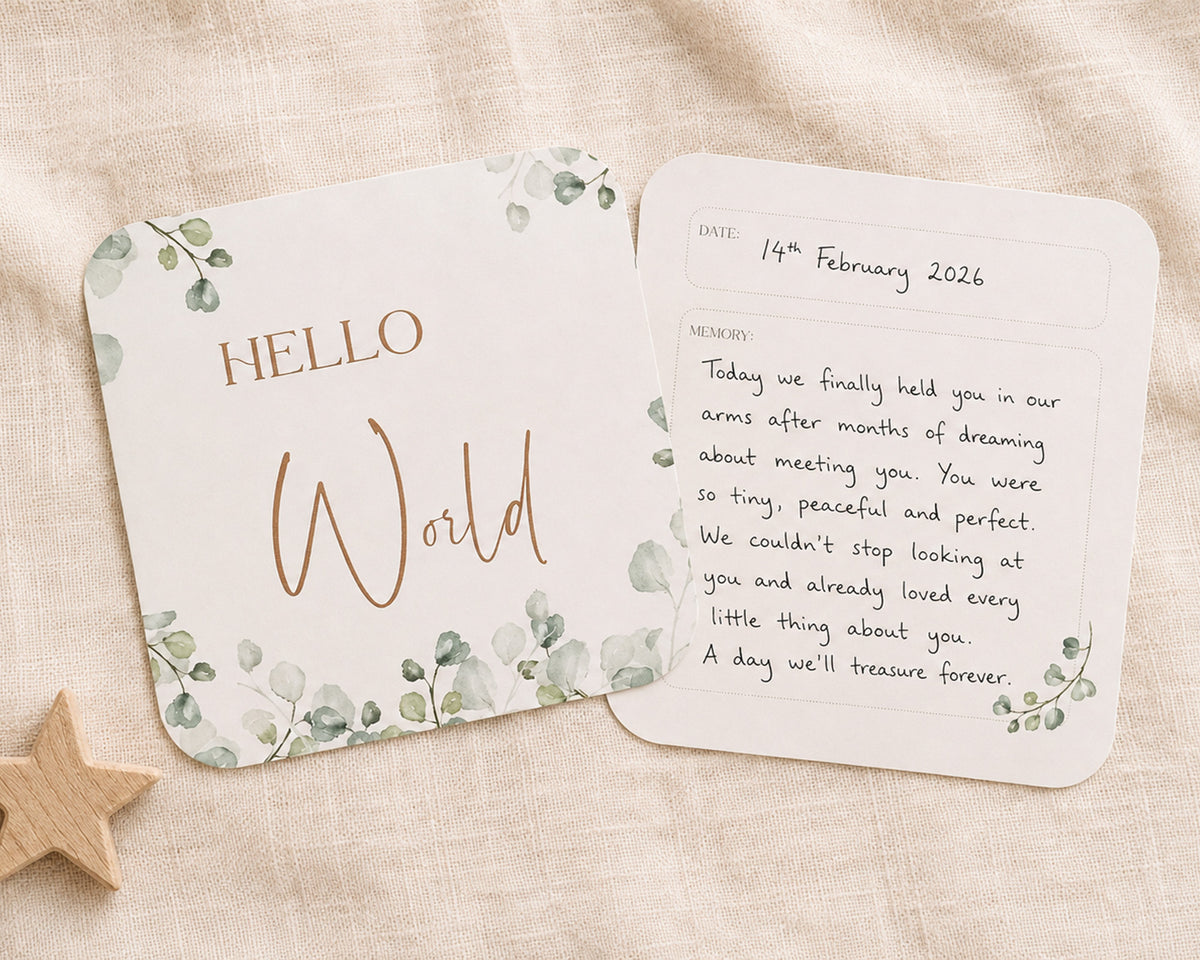 HELLO
World
DATE:
14th February 2026
MEMORY:
Today we finally held you in our
arms after months of dreaming
about meeting you. You were
so tiny, peaceful and perfect.
We couldn't stop looking at
you and already loved every
little thing about you.
A day we'll treasure forever.